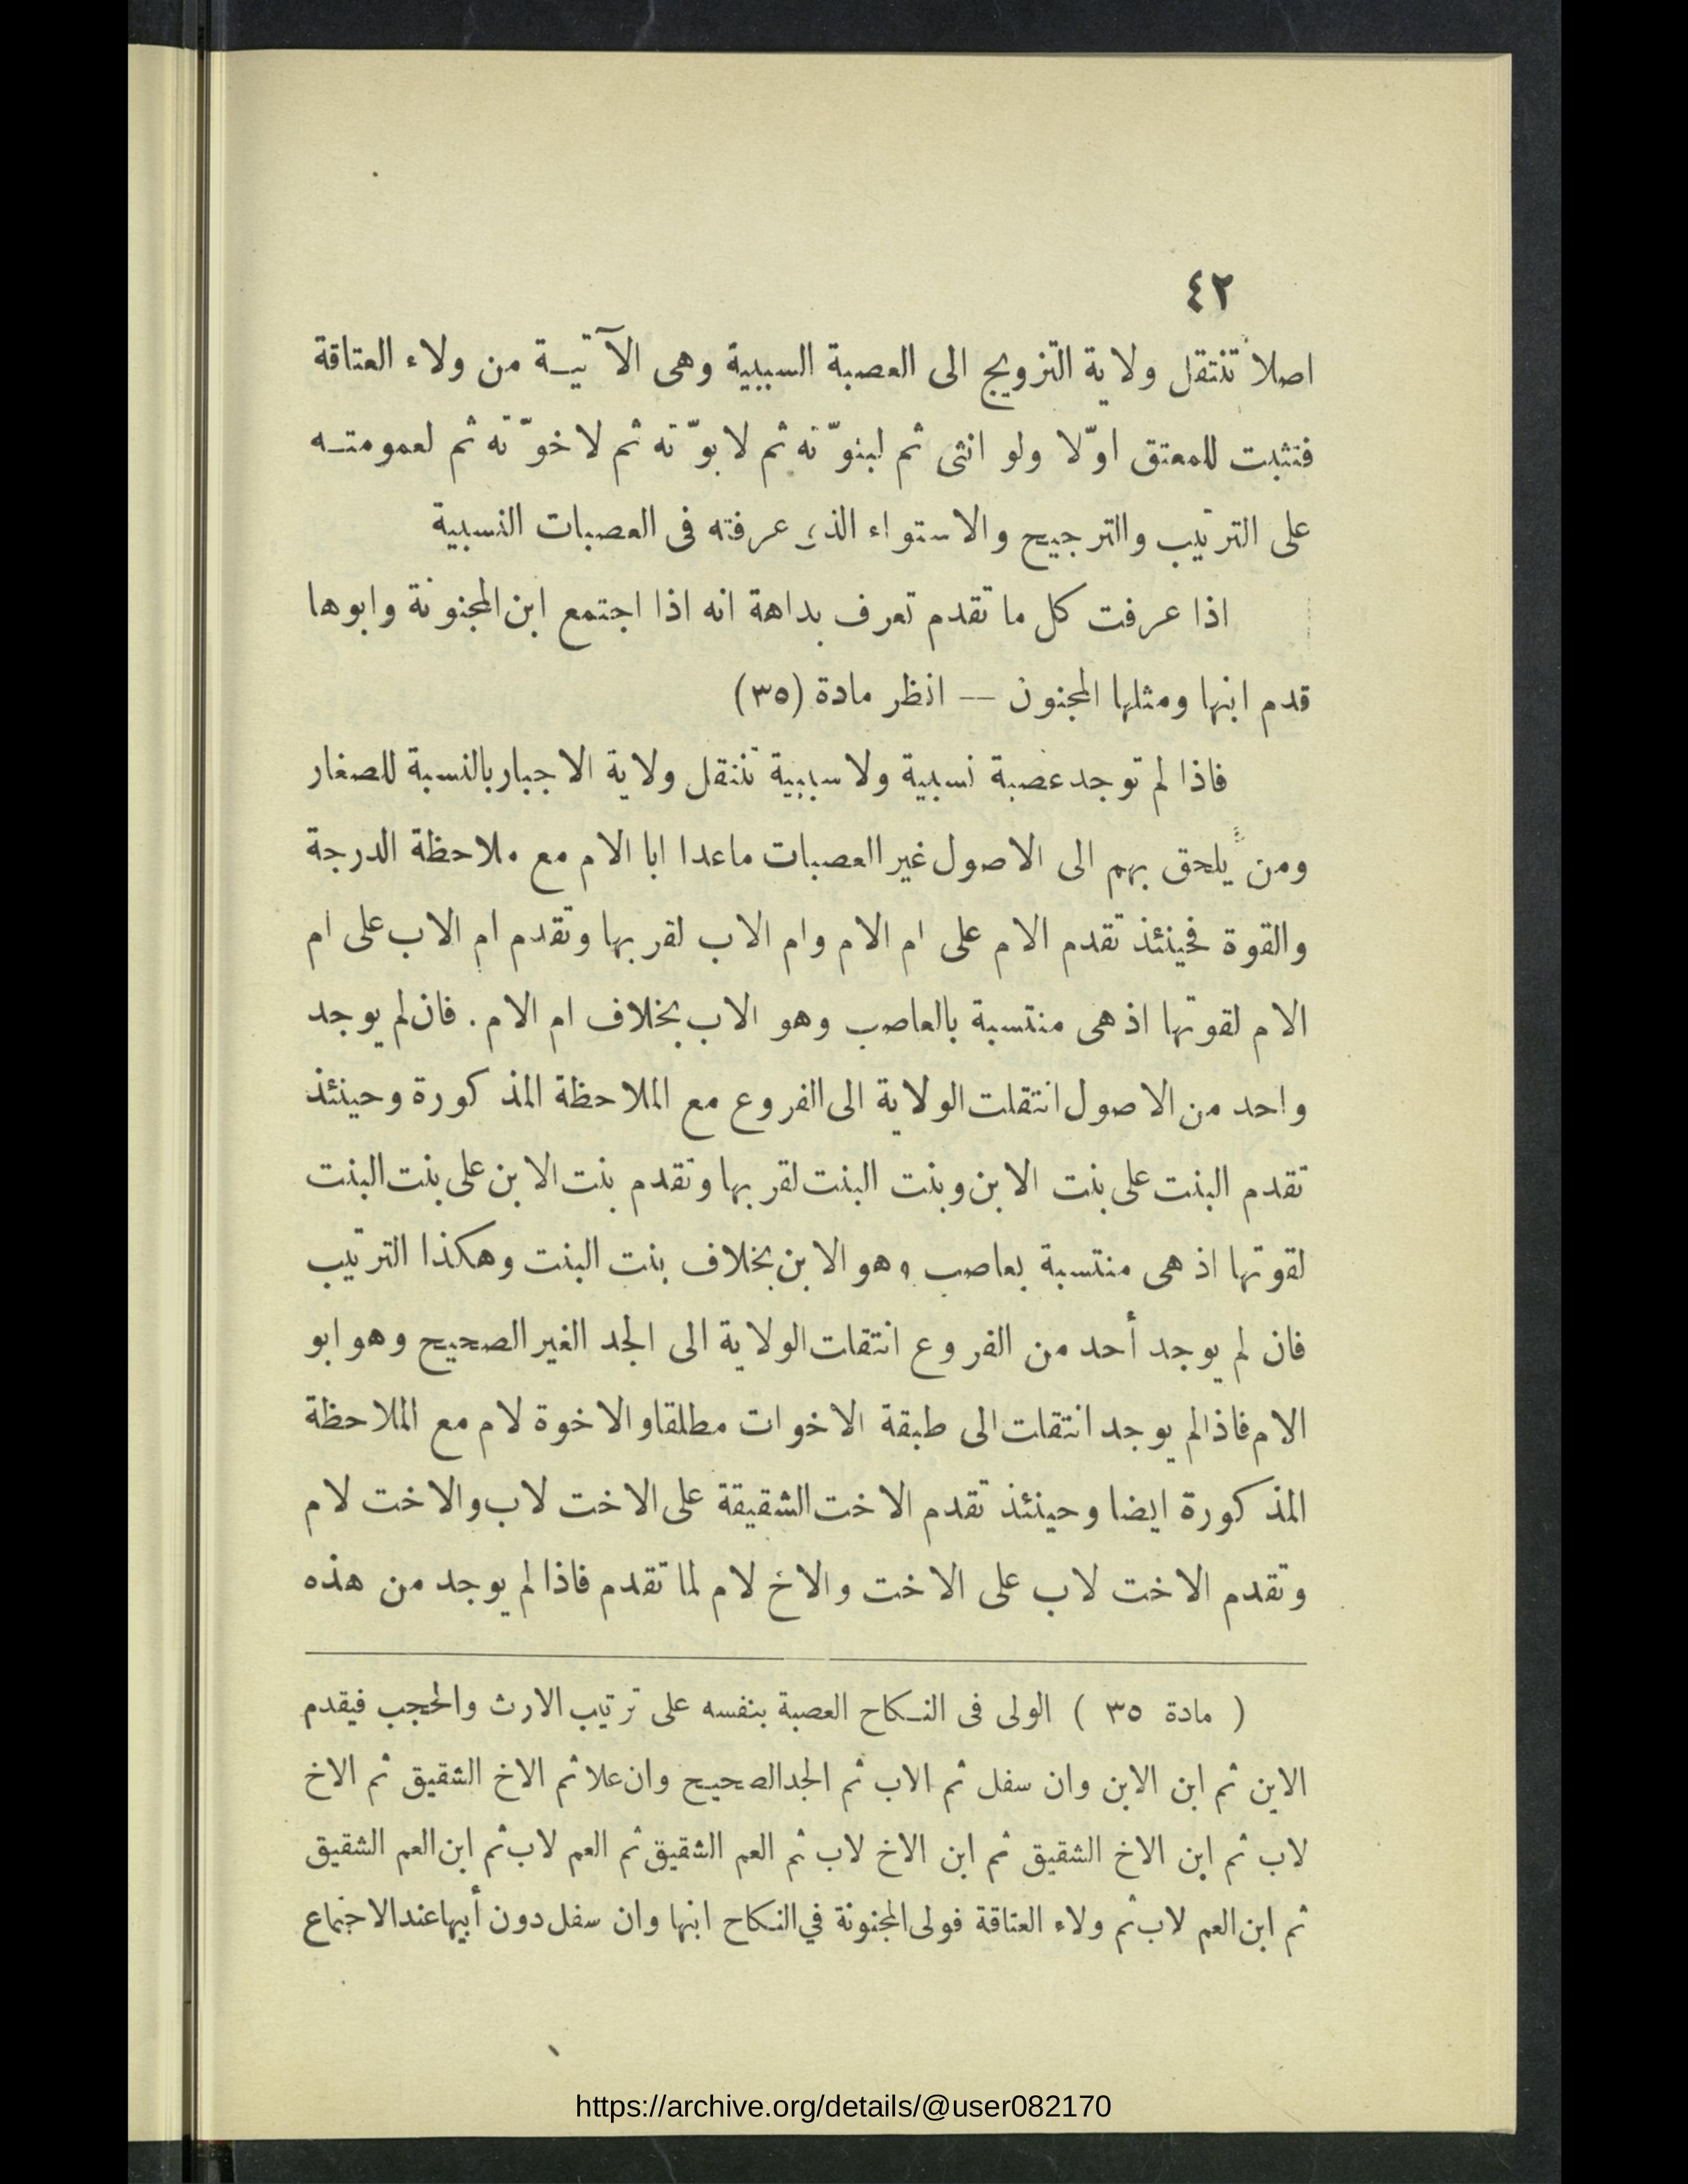 ٤٢
اصلاً تنتقل ولاية التزويج الى العصبة السببية وهى الآتيـة من ولاء العتاقة
فتثبت للمعتق اوّلا ولو انثى ثم لبنوّته ثم لابوّته ثم لاخوّته ثم لعمومتـه
على الترتيب والترجيح والاستواء الذى عرفته فى العصبات النسبية
اذا عرفت كل ما تقدم تعرف بداهة انه اذا اجتمع ابن المجنونة وابوها
قدم ابنها ومثلها المجنون — انظر مادة (٣٥)
فاذا لم توجد عصبة نسبية ولا سببية تنتقل ولاية الاجبار بالنسبة للصغار
ومن يلحق بهم الى الاصول غير العصبات ماعدا ابا الام مع ملاحظة الدرجة
والقوة فحينئذ تقدم الام على ام الام وام الاب لقربها وتقدم ام الاب على ام
الام لقوتها اذ هى منتسبة بالعاصب وهو الاب بخلاف ام الام . فان لم يوجد
واحد من الاصول انتقلت الولاية الى الفروع مع الملاحظة المذكورة وحينئذ
تقدم البنت على بنت الابن وبنت البنت لقربها وتقدم بنت الابن على بنت البنت
لقوتها اذ هى منتسبة بعاصب وهو الابن بخلاف بنت البنت وهكذا الترتيب
فان لم يوجد أحد من الفروع انتقلت الولاية الى الجد الغير الصحيح وهو ابو
الام فاذا لم يوجد انتقلت الى طبقة الاخوات مطلقا والاخوة لام مع الملاحظة
المذكورة ايضا وحينئذ تقدم الاخت الشقيقة على الاخت لاب والاخت لام
وتقدم الاخت لاب على الاخت والاخ لام لما تقدم فاذا لم يوجد من هذه
( مادة ٣٥ ) الولى فى النـكاح العصبة بنفسه على ترتيب الارث والحجب فيقدم
الابن ثم ابن الابن وان سفل ثم الاب ثم الجد الصحيح وان علا ثم الاخ الشقيق ثم الاخ
لاب ثم ابن الاخ الشقيق ثم ابن الاخ لاب ثم العم الشقيق ثم العم لاب ثم ابن العم الشقيق
ثم ابن العم لاب ثم ولاء العتاقة فولى المجنونة في النـكاح ابنها وان سفل دون أبيها عند الاجتماع
https://archive.org/details/@user082170